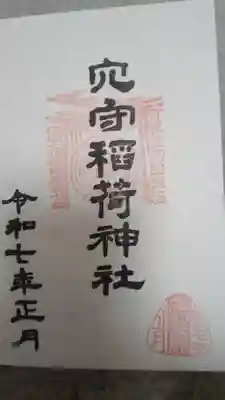 穴守稲荷神社
令和七年正月